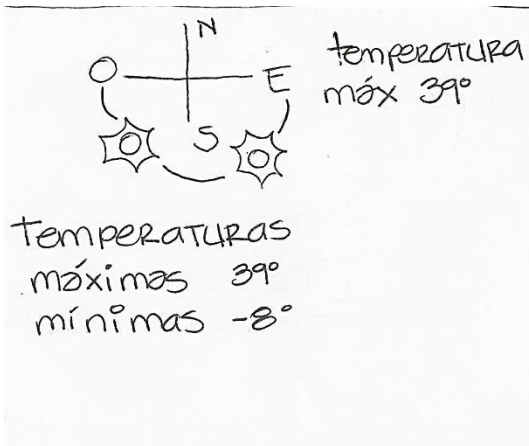 N
O E
S
temperatura
máx 39°
temperaturas
máximas 39°
mínimas -8°